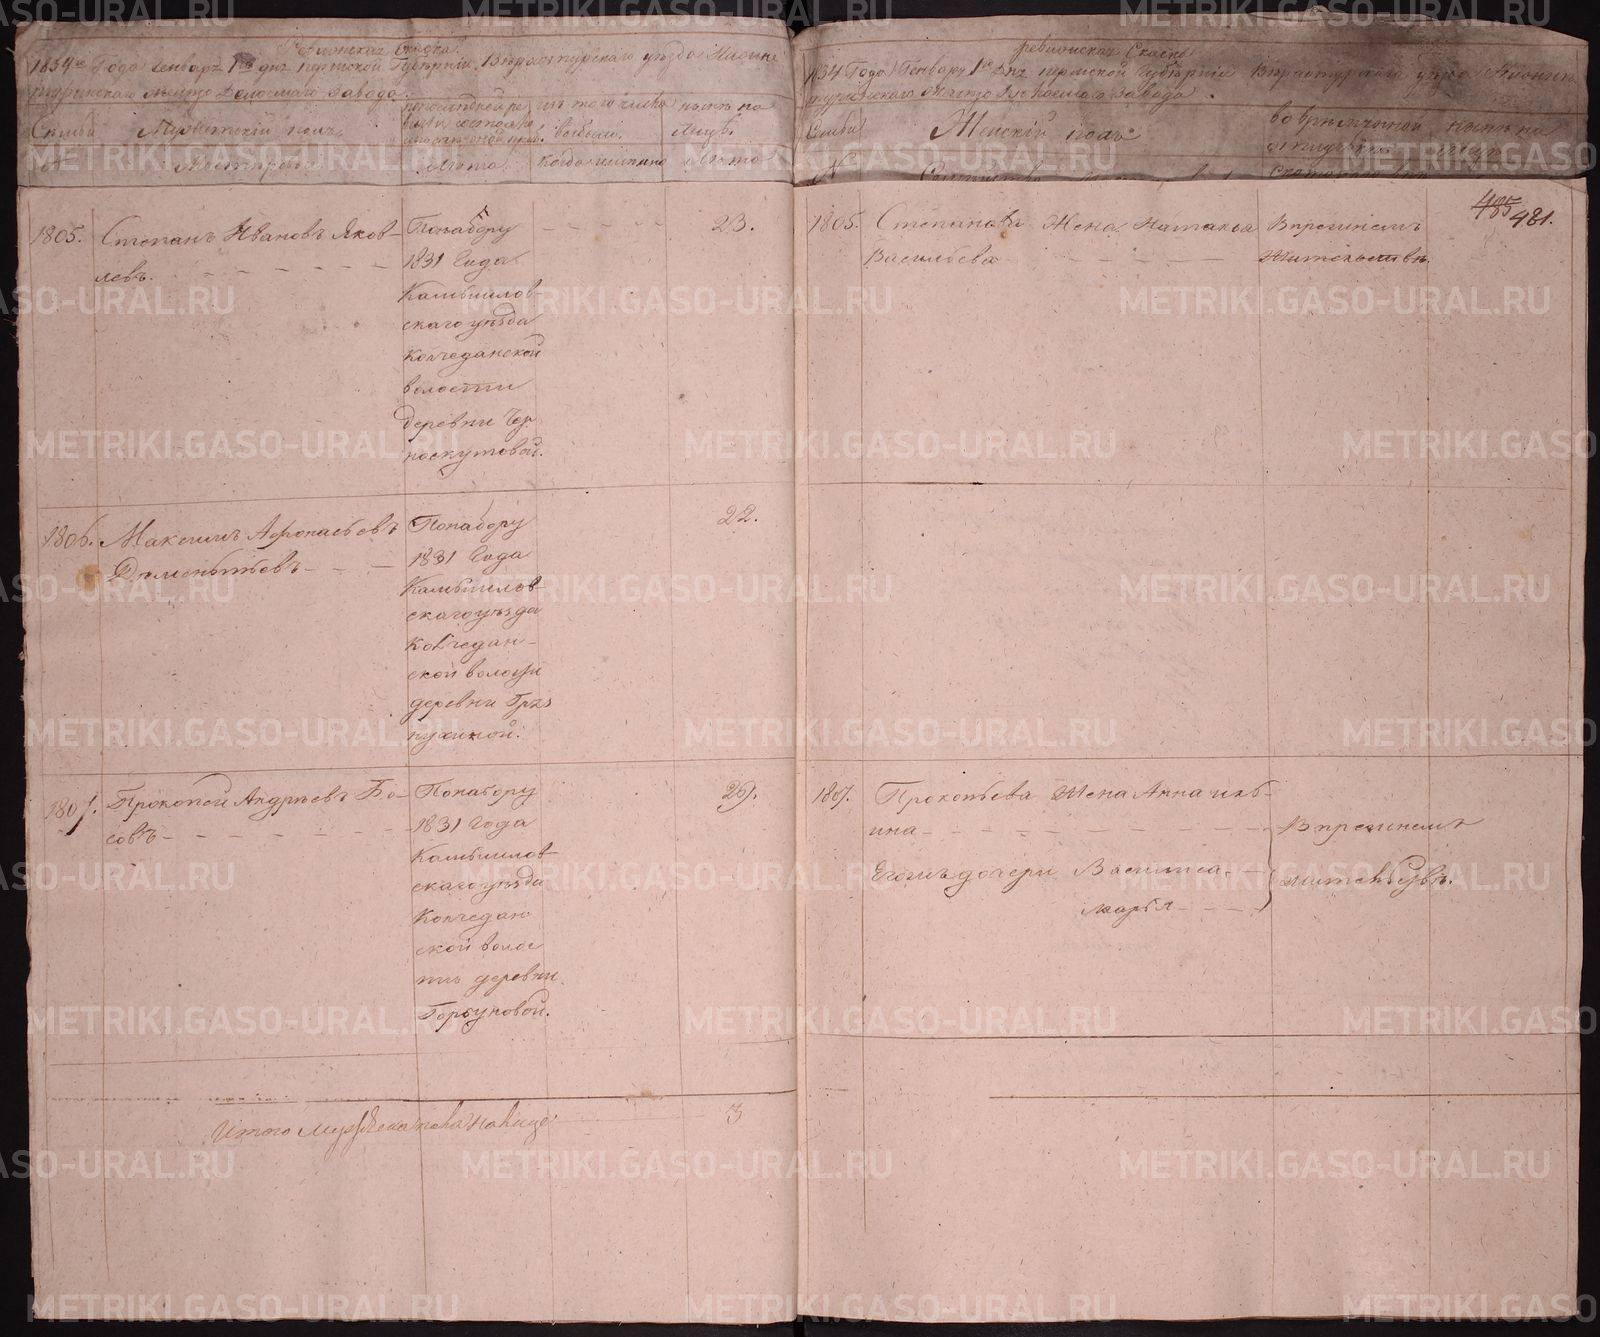 Ревижская Скаска
1834го Года Генваря 1го дня пермской Губернии Верхотурского уезда Нижне
туринскаго Железо Делаемаго завода
Семьи Мужескій полъ
Лета Когда именно Лета
1805. Степанъ Ивановъ Яков-
левъ.
Понабору
1831 Года
Камышлов-
скаго уѣзда
Колчеданской
волости
деревни Чер
носкутовой.
23.
1806. Максимъ Афонасьевъ
Дѣментьевъ
Понабору
1831 Года
Камышлов-
скаго уѣзда
Колчедан-
ской волости
деревни Гряз
нухиной.
22.
1807. Прокопей Андрѣевъ Бо-
совъ
Понабору
1831 Года
Камышлов-
скаго уѣзда
Колчедан
ской волос
ти деревни
Горбуновой.
29.
Итого Мужеска пола налицо 3
ревижская Скаска
1834 Года Генваря 1го Дня пермской Губерніи Верхотурскаго уезда
Семьи Женскій полъ
485 481.
1805. Степанова Жена Наталья
Васильева
Впрежнемъ
Жительствѣ.
1807. Прокопьева Жена Анна Иль-
ина
Егожъ дочери Василиса
Марья
Впрежнемъ
жительствѣ.
METRIKI.GASO-URAL.RU